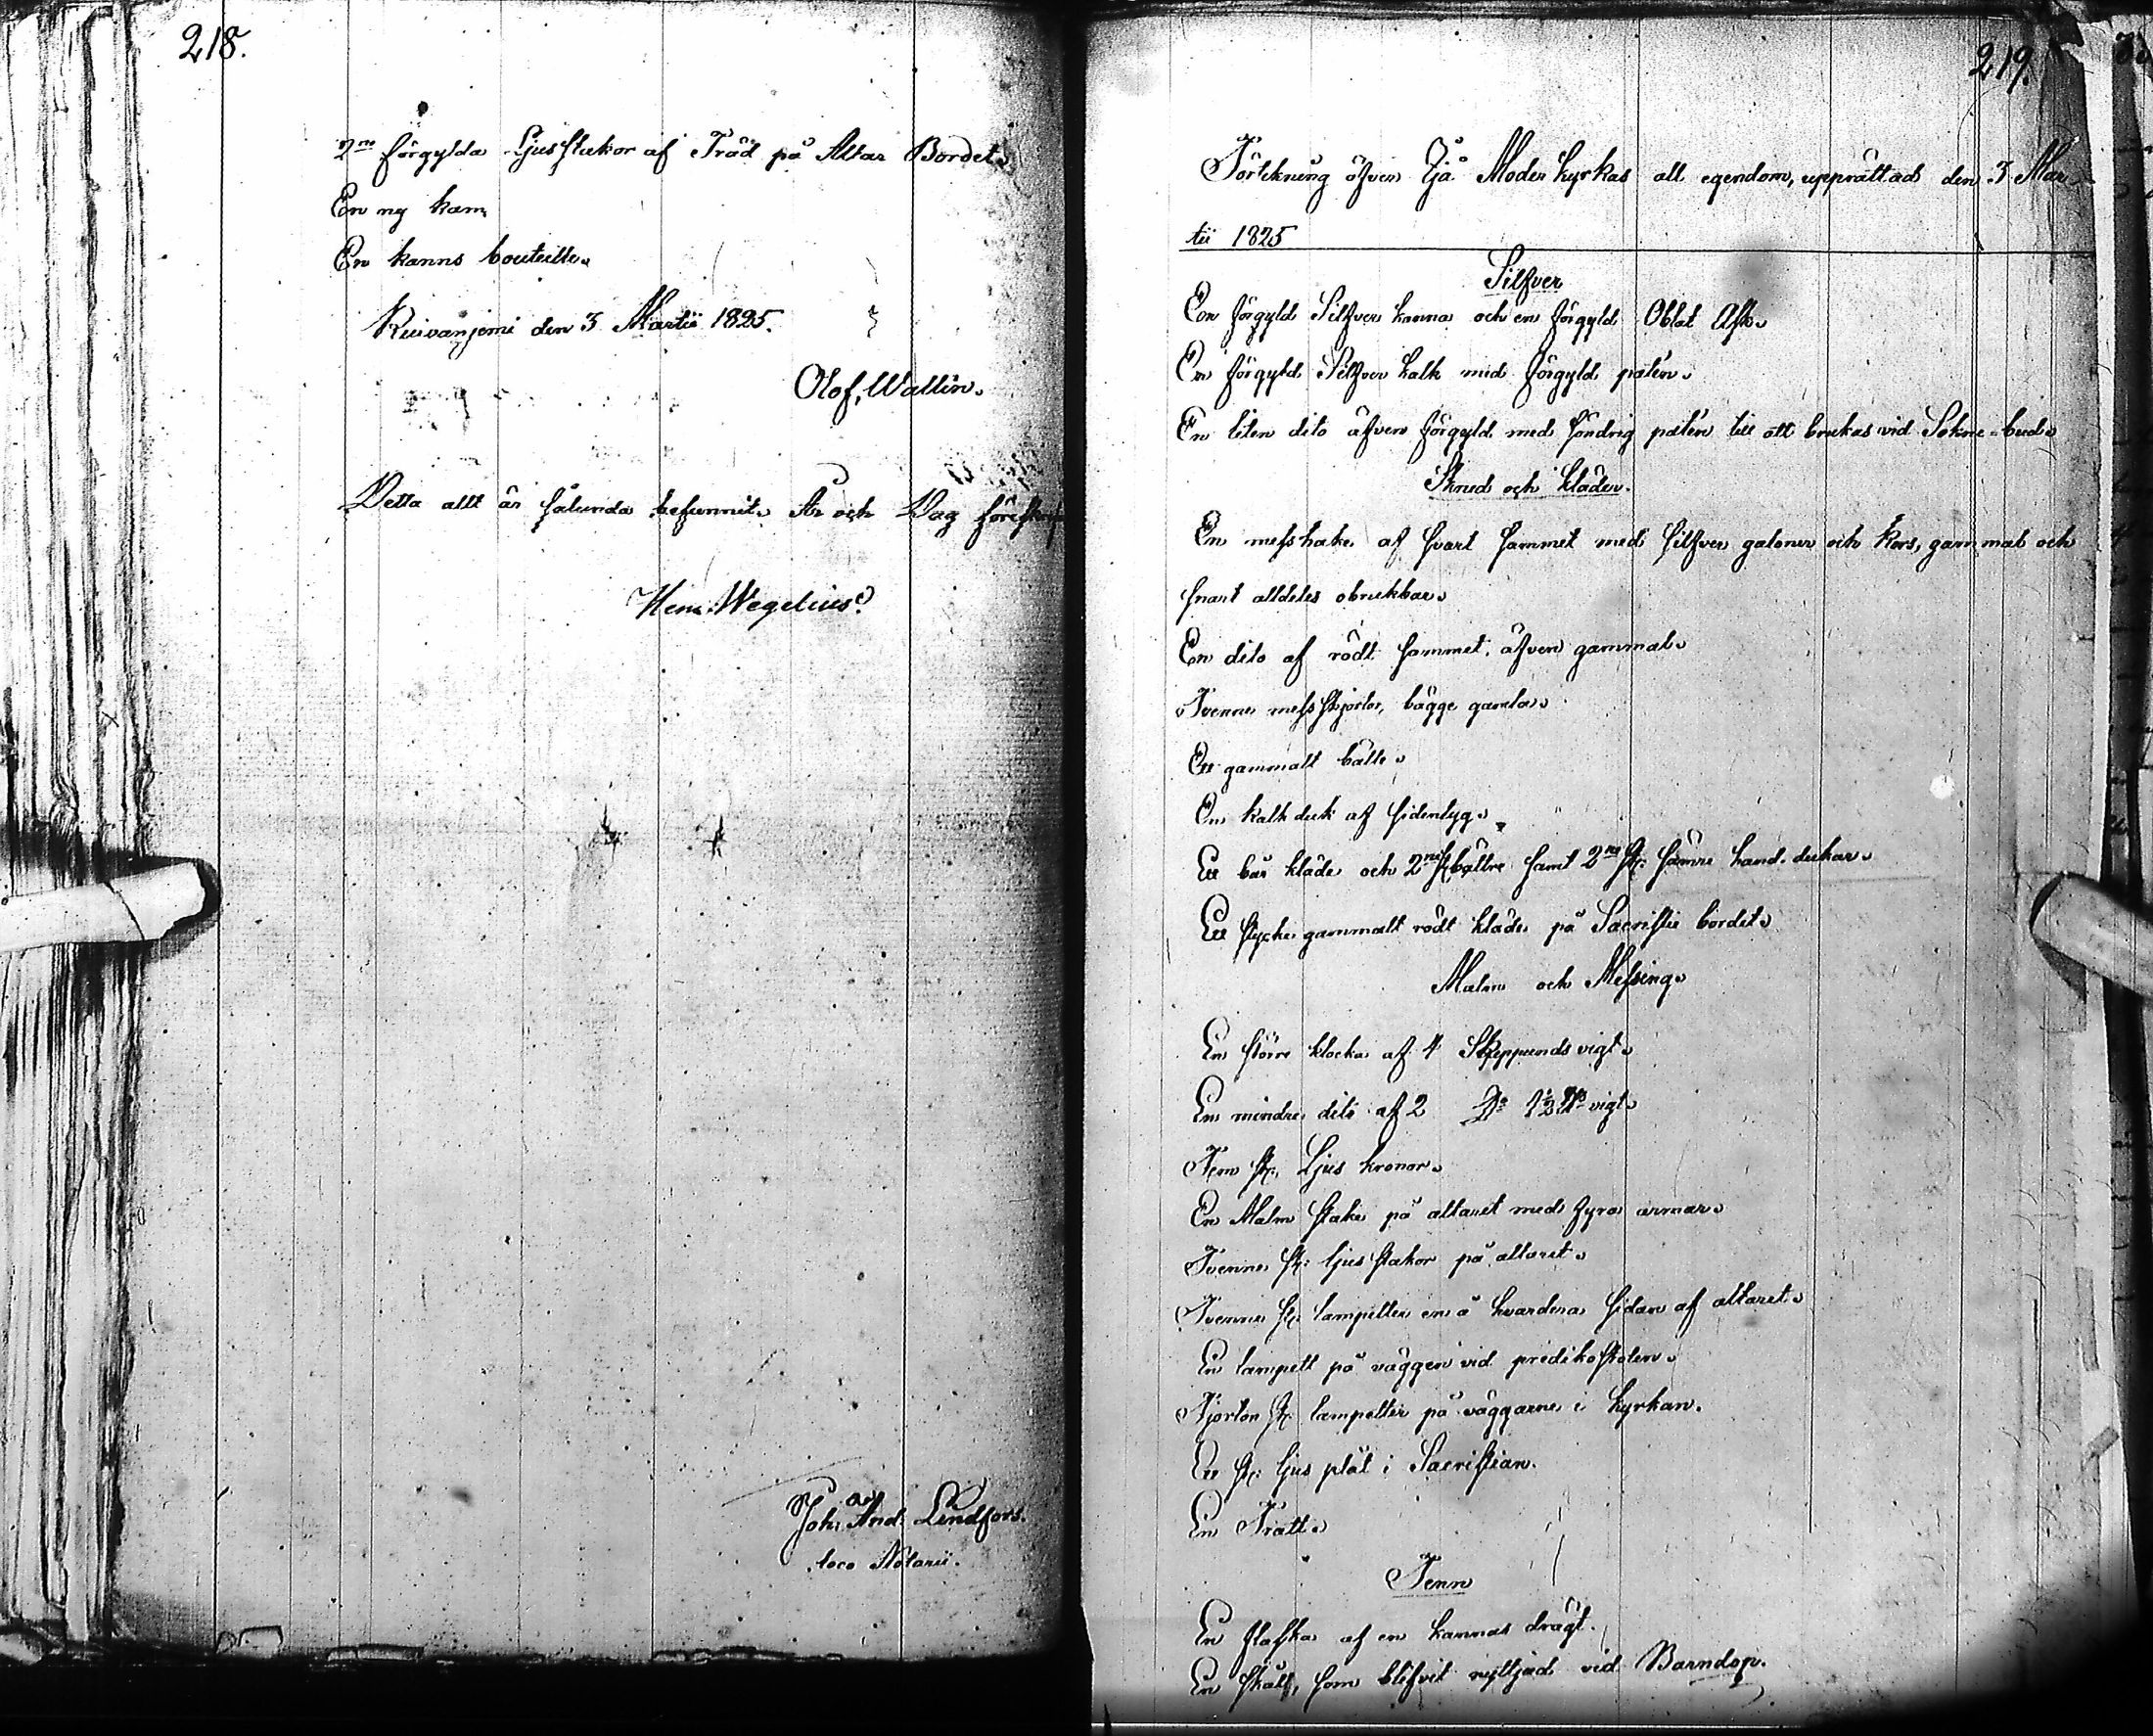 218.
2ne förgylda Ljusstakor af Träd på Altar Bordet.
En ny kam
En kanns bouteille.
Kuivanjemi den 3 Martii 1825.
Olof Wallin.
Detta allt är sålunda befunnit. År och Dag föreskrifne
Henr: Wegelius.
Joh: And: Lindfors.
loco Notarii.
219.
Förtekning öfver Ijå Moder kyrkas all egendom, upprättad den 3 Mar-
tii 1825
Silfver
En förgyld Silfver kanna och en förgyld Oblat Ask.
En förgyld Silfver kalk med förgyld paten.
En liten dito äfven förgyld med söndrig paten till att brukas vid Sokne-bud.
Skrud och kläder.
En messhake af svart sammet med silfver galoner och kors, gammal och
snart alldeles obrukbar.
En dito af rödt sammet, äfven gammal.
Tvenne mess skjortor, bägge gamla.
Ett gammalt bälte.
En kalk duk af sidentyg.
Ett bår kläde och 2ne st bättre samt 2ne st: sämre hand-dukar.
Ett stycke gammalt rödt kläde på Sacristie bordet.
Malm och Messing.
En större klocka af 4 Skeppunds vigt.
En mindre dito af 2 Do 1½ vigt.
Fem st: Ljus kronor.
En Malm stake på altaret med fyra armar.
Tvenne st: ljus stakor på altaret.
Tvenne st: lampetter en å hvardera sidan af altaret.
En lampett på väggen vid predikostolen.
Fjorton st: lampetter på väggarne i kyrkan.
En st: ljus plåt i Sacristian.
En Tratt.
Tenn
En flaska af en kannas drägt.
En skåll, som blifvit nyttjad vid Barndop.